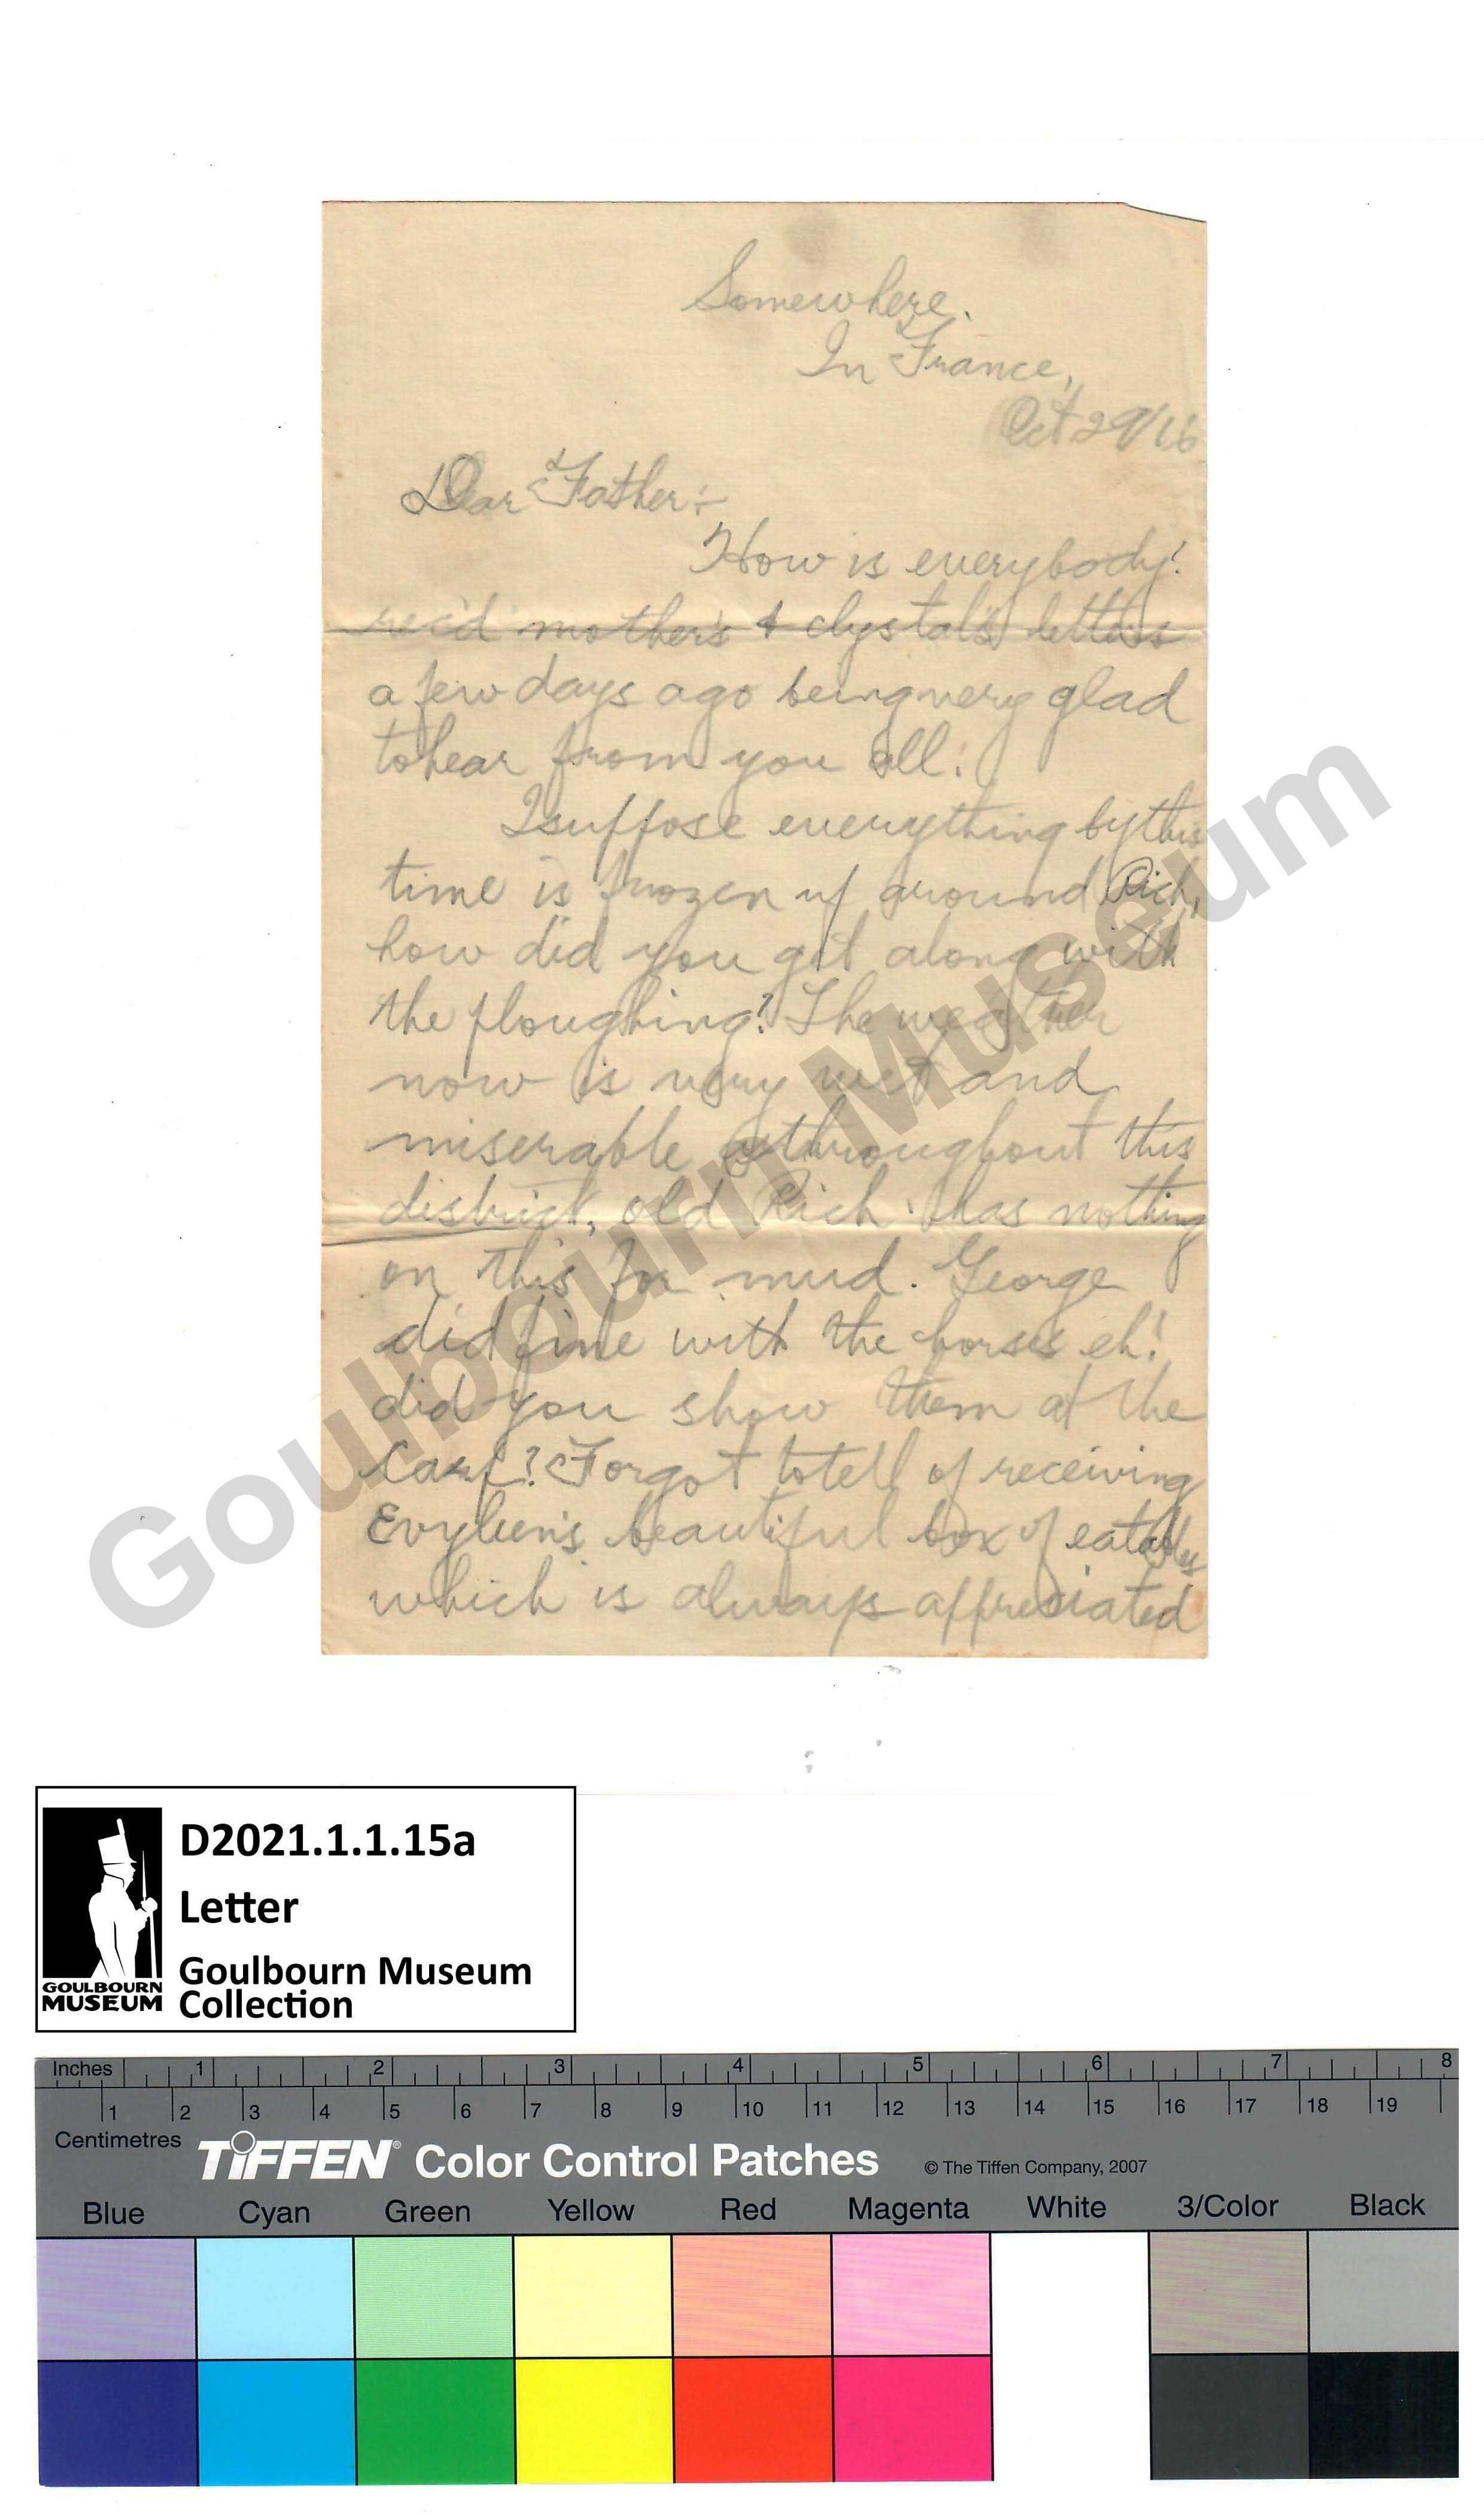 Somewhere.
In France,
Oct 29/16
Dear Father:-
How is everybody!
rec'd mother's & clystal's letters
a few days ago being very glad
to hear from you all.
I suppose everything by this
time is frozen up around Rich,
how did you get along with
the ploughing? The weather
now is very wet and
miserable throughout this
district, old Rich. has nothing
on this for mud. George
did fine with the horses eh!
did you show them at the
Carp? Forgot to tell of receiving
Evyleen's beautiful box of eatables
which is always appreciated
Goulbourn Museum
D2021.1.1.15a
Letter
Goulbourn Museum
Collection
GOULBOURN
MUSEUM
Inches 1 2 3 4 5 6 7 8
1 2 3 4 5 6 7 8 9 10 11 12 13 14 15 16 17 18 19
Centimetres
TIFFEN® Color Control Patches © The Tiffen Company, 2007
Blue Cyan Green Yellow Red Magenta White 3/Color Black